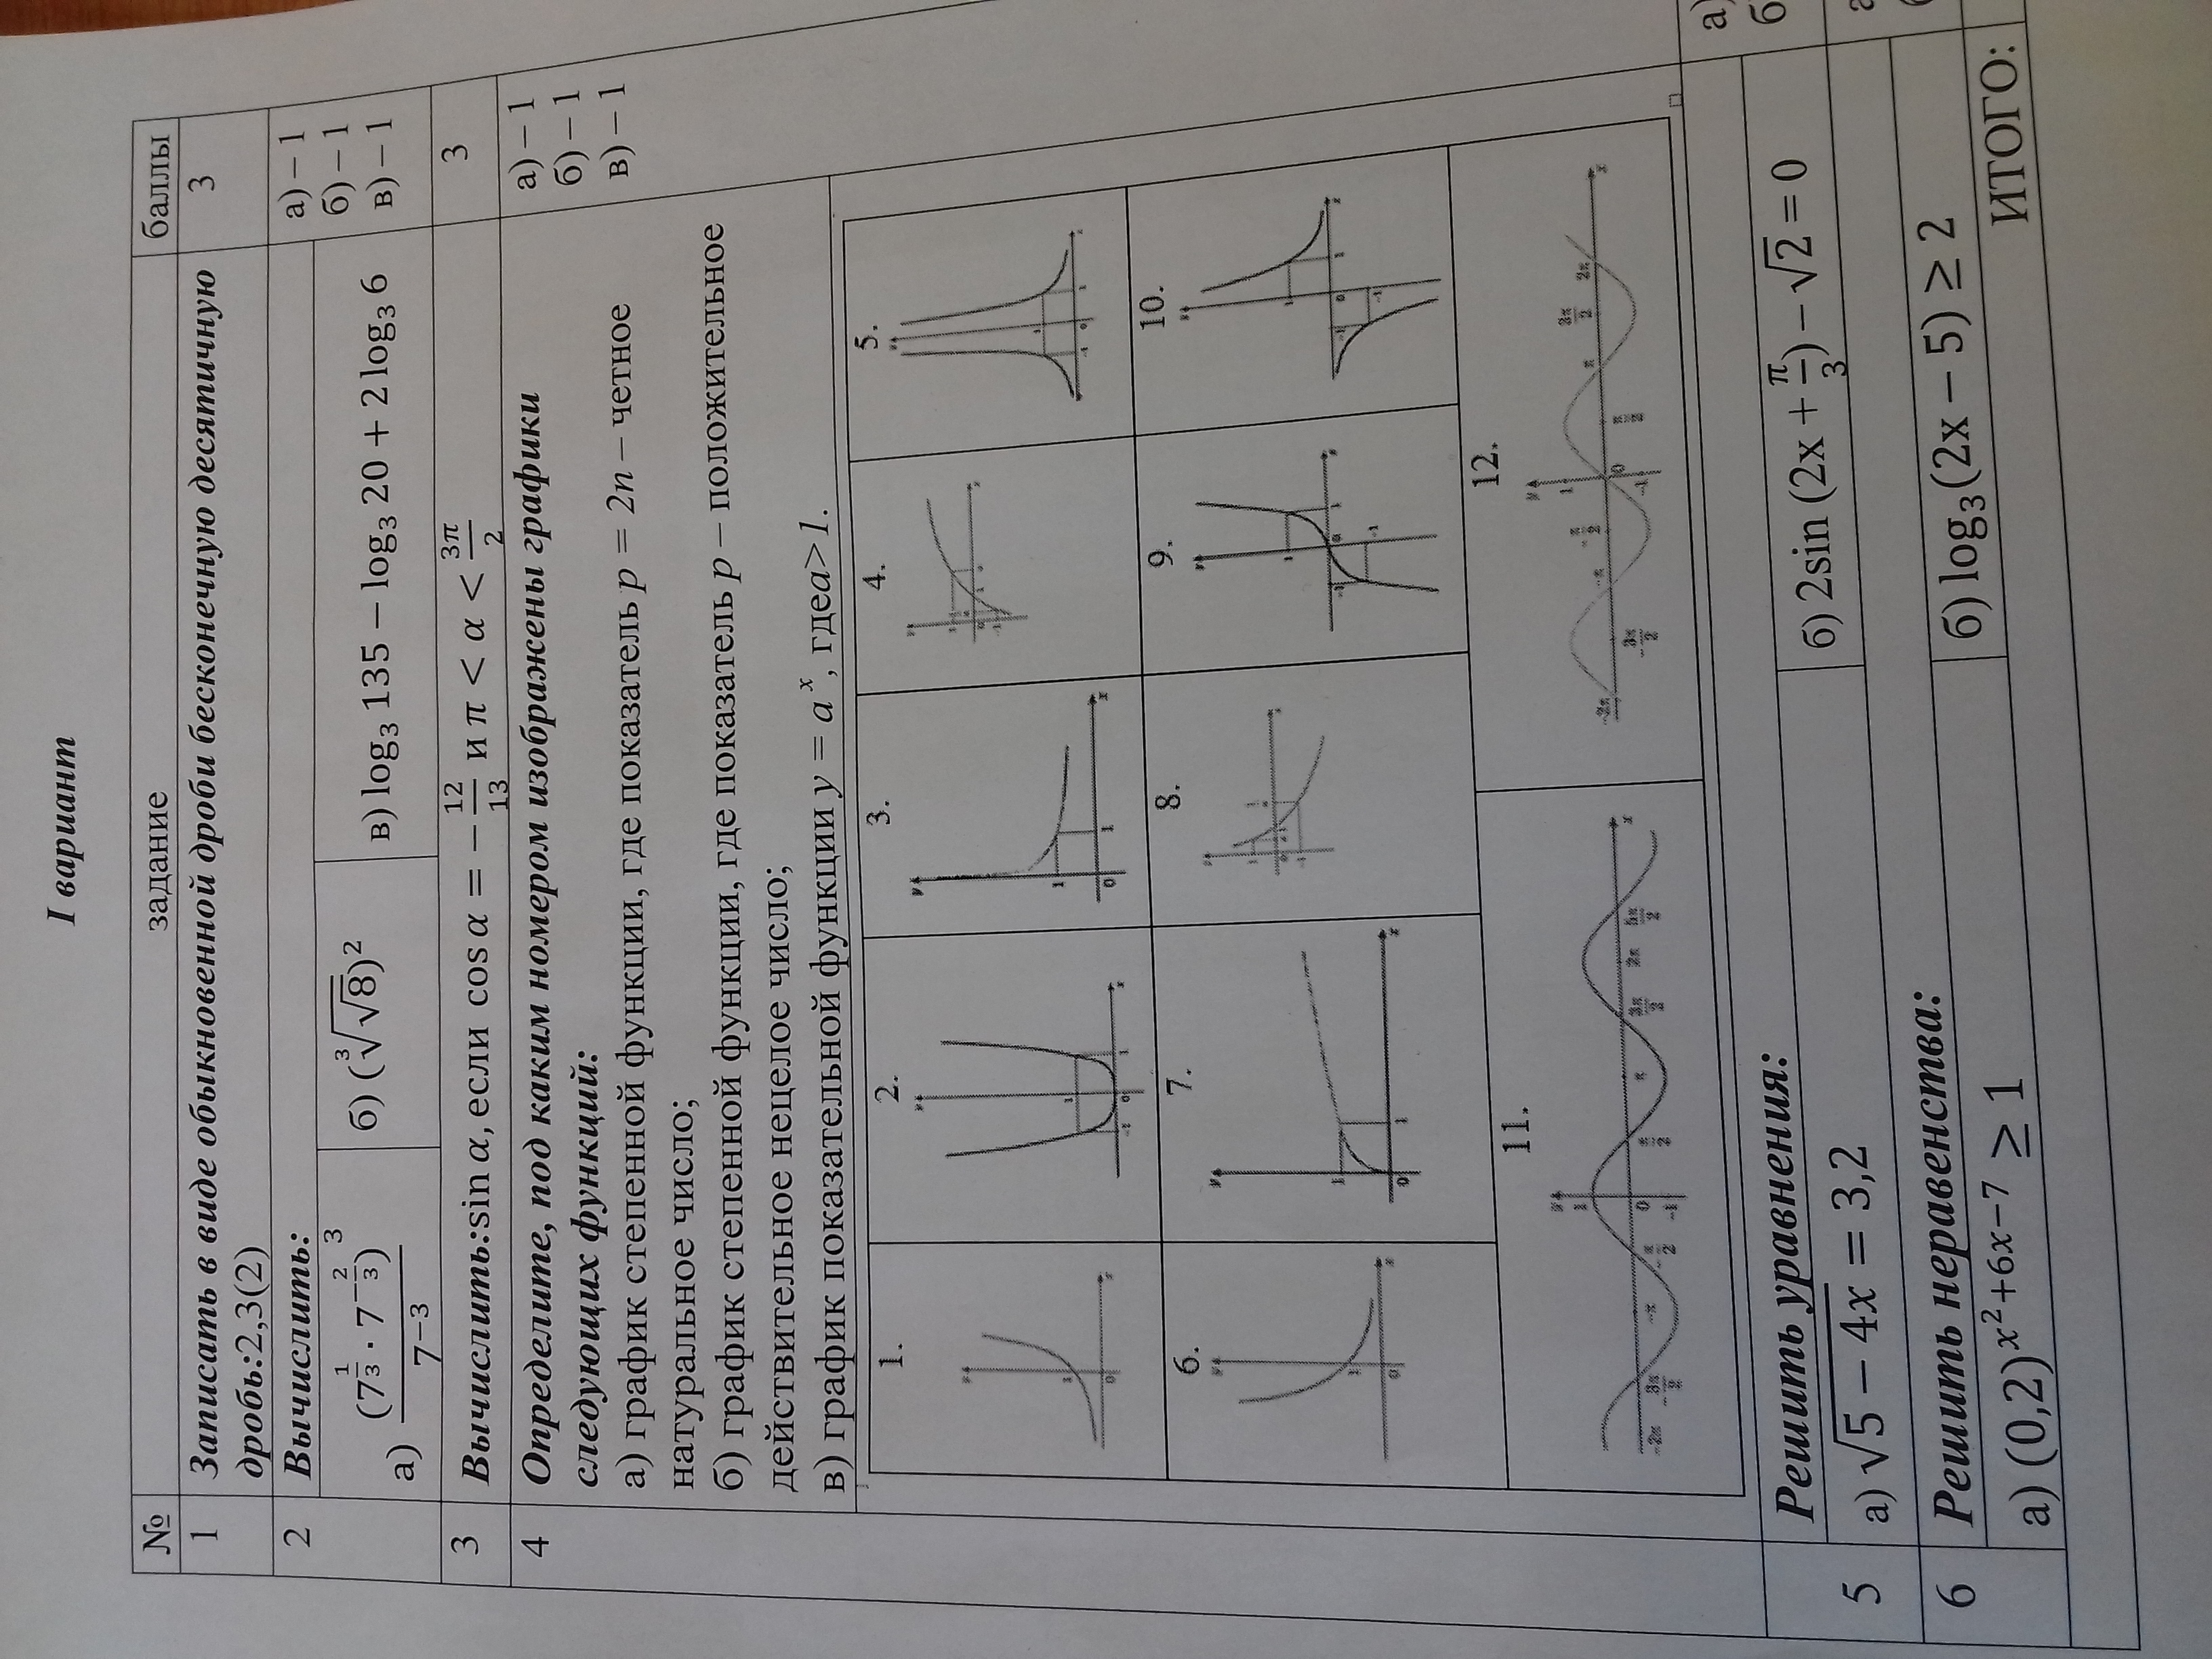 I вариант
№ задание баллы
1 Записать в виде обыкновенной дроби бесконечную десятичную 3
дробь:2,3(2)
2 Вычислить: а) – 1
б) – 1
в) – 1
а) (7^{1/3} · 7^{-2/3})^3 / 7^{-3} б) (∛√8)^2 в) log₃ 135 − log₃ 20 + 2 log₃ 6
3 Вычислить:sin α, если cos α = − 12/13 и π < α < 3π/2 3
4 Определите, под каким номером изображены графики а) – 1
следующих функций: б) – 1
а) график степенной функции, где показатель p = 2n – четное в) – 1
натуральное число;
б) график степенной функции, где показатель p – положительное
действительное нецелое число;
в) график показательной функции y = a^x, гдеa>1.
1. 2. 3. 4. 5.
6. 7. 8. 9. 10.
11. 12.
5 Решить уравнения: а)
б
а) √(5 − 4x) = 3,2 б) 2sin (2x + π/3) − √2 = 0
6 Решить неравенства:
а) (0,2)^{x²+6x−7} ≥ 1 б) log₃(2x − 5) ≥ 2
ИТОГО: